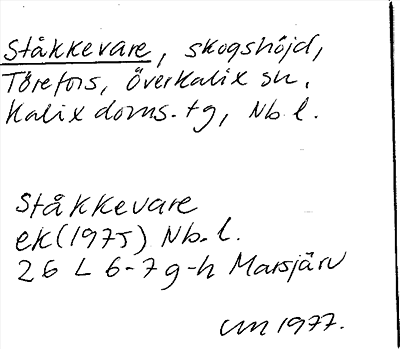 Ståkkevare, skogshöjd,
Törefors, Överkalix sn,
Kalix doms. tg, Nb. l.
Ståkkevare
ek (1975) Nb. l.
26 L 6-7 g-h Marsjärv
UM 1977.